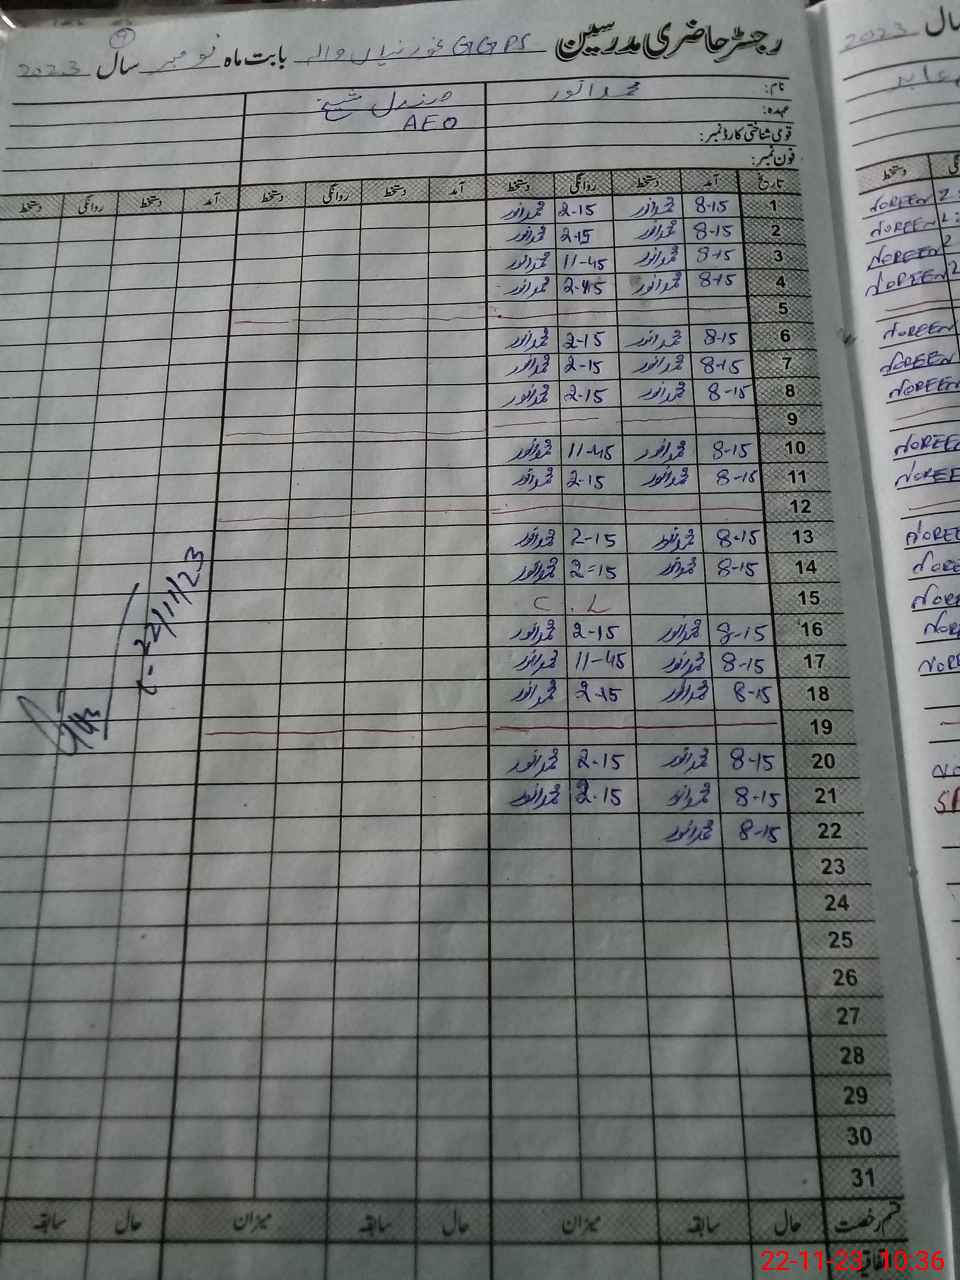 رجسٹر حاضری مدرسین GGPS والہ بابت ماہ نومبر سال 2023
نام: محمد انور
عہدہ: AEO
قومی شناختی کارڈ نمبر:
فون نمبر:
تاریخ آمد دستخط روانگی دستخط آمد دستخط روانگی دستخط آمد دستخط روانگی دستخط
1 8-15 محمد انور 2-15 محمد انور
2 8-15 محمد انور 2-15 محمد انور
3 8-15 محمد انور 11-45 محمد انور
4 8-15 محمد انور محمد انور
5
6 8-15 محمد انور 2-15 محمد انور
7 8-15 محمد انور 2-15 محمد انور
8 8-15 محمد انور 2-15 محمد انور
9
10 8-15 محمد انور 11-45 محمد انور
11 8-15 محمد انور 2-15 محمد انور
12
13 8-15 محمد انور 2-15 محمد انور
14 8-15 محمد انور 2=15 محمد انور
15 C.L
16 8-15 محمد انور 2-15 محمد انور
17 8-15 محمد انور 11-45 محمد انور
18 8-15 محمد انور 2-15 محمد انور
19
20 8-15 محمد انور 2-15 محمد انور
21 8-15 محمد انور 2-15 محمد انور
22 8-15 محمد انور
23
24
25
26
27
28
29
30
31
قسم رخصت حال سابقہ میزان حال سابقہ میزان حال سابقہ
22/11/23
سال 2023
دستخط
NOREEN
NOREEN
NOREEN
NOREEN
NOREEN
NOREEN
NOREEN
22-11-23 10:36